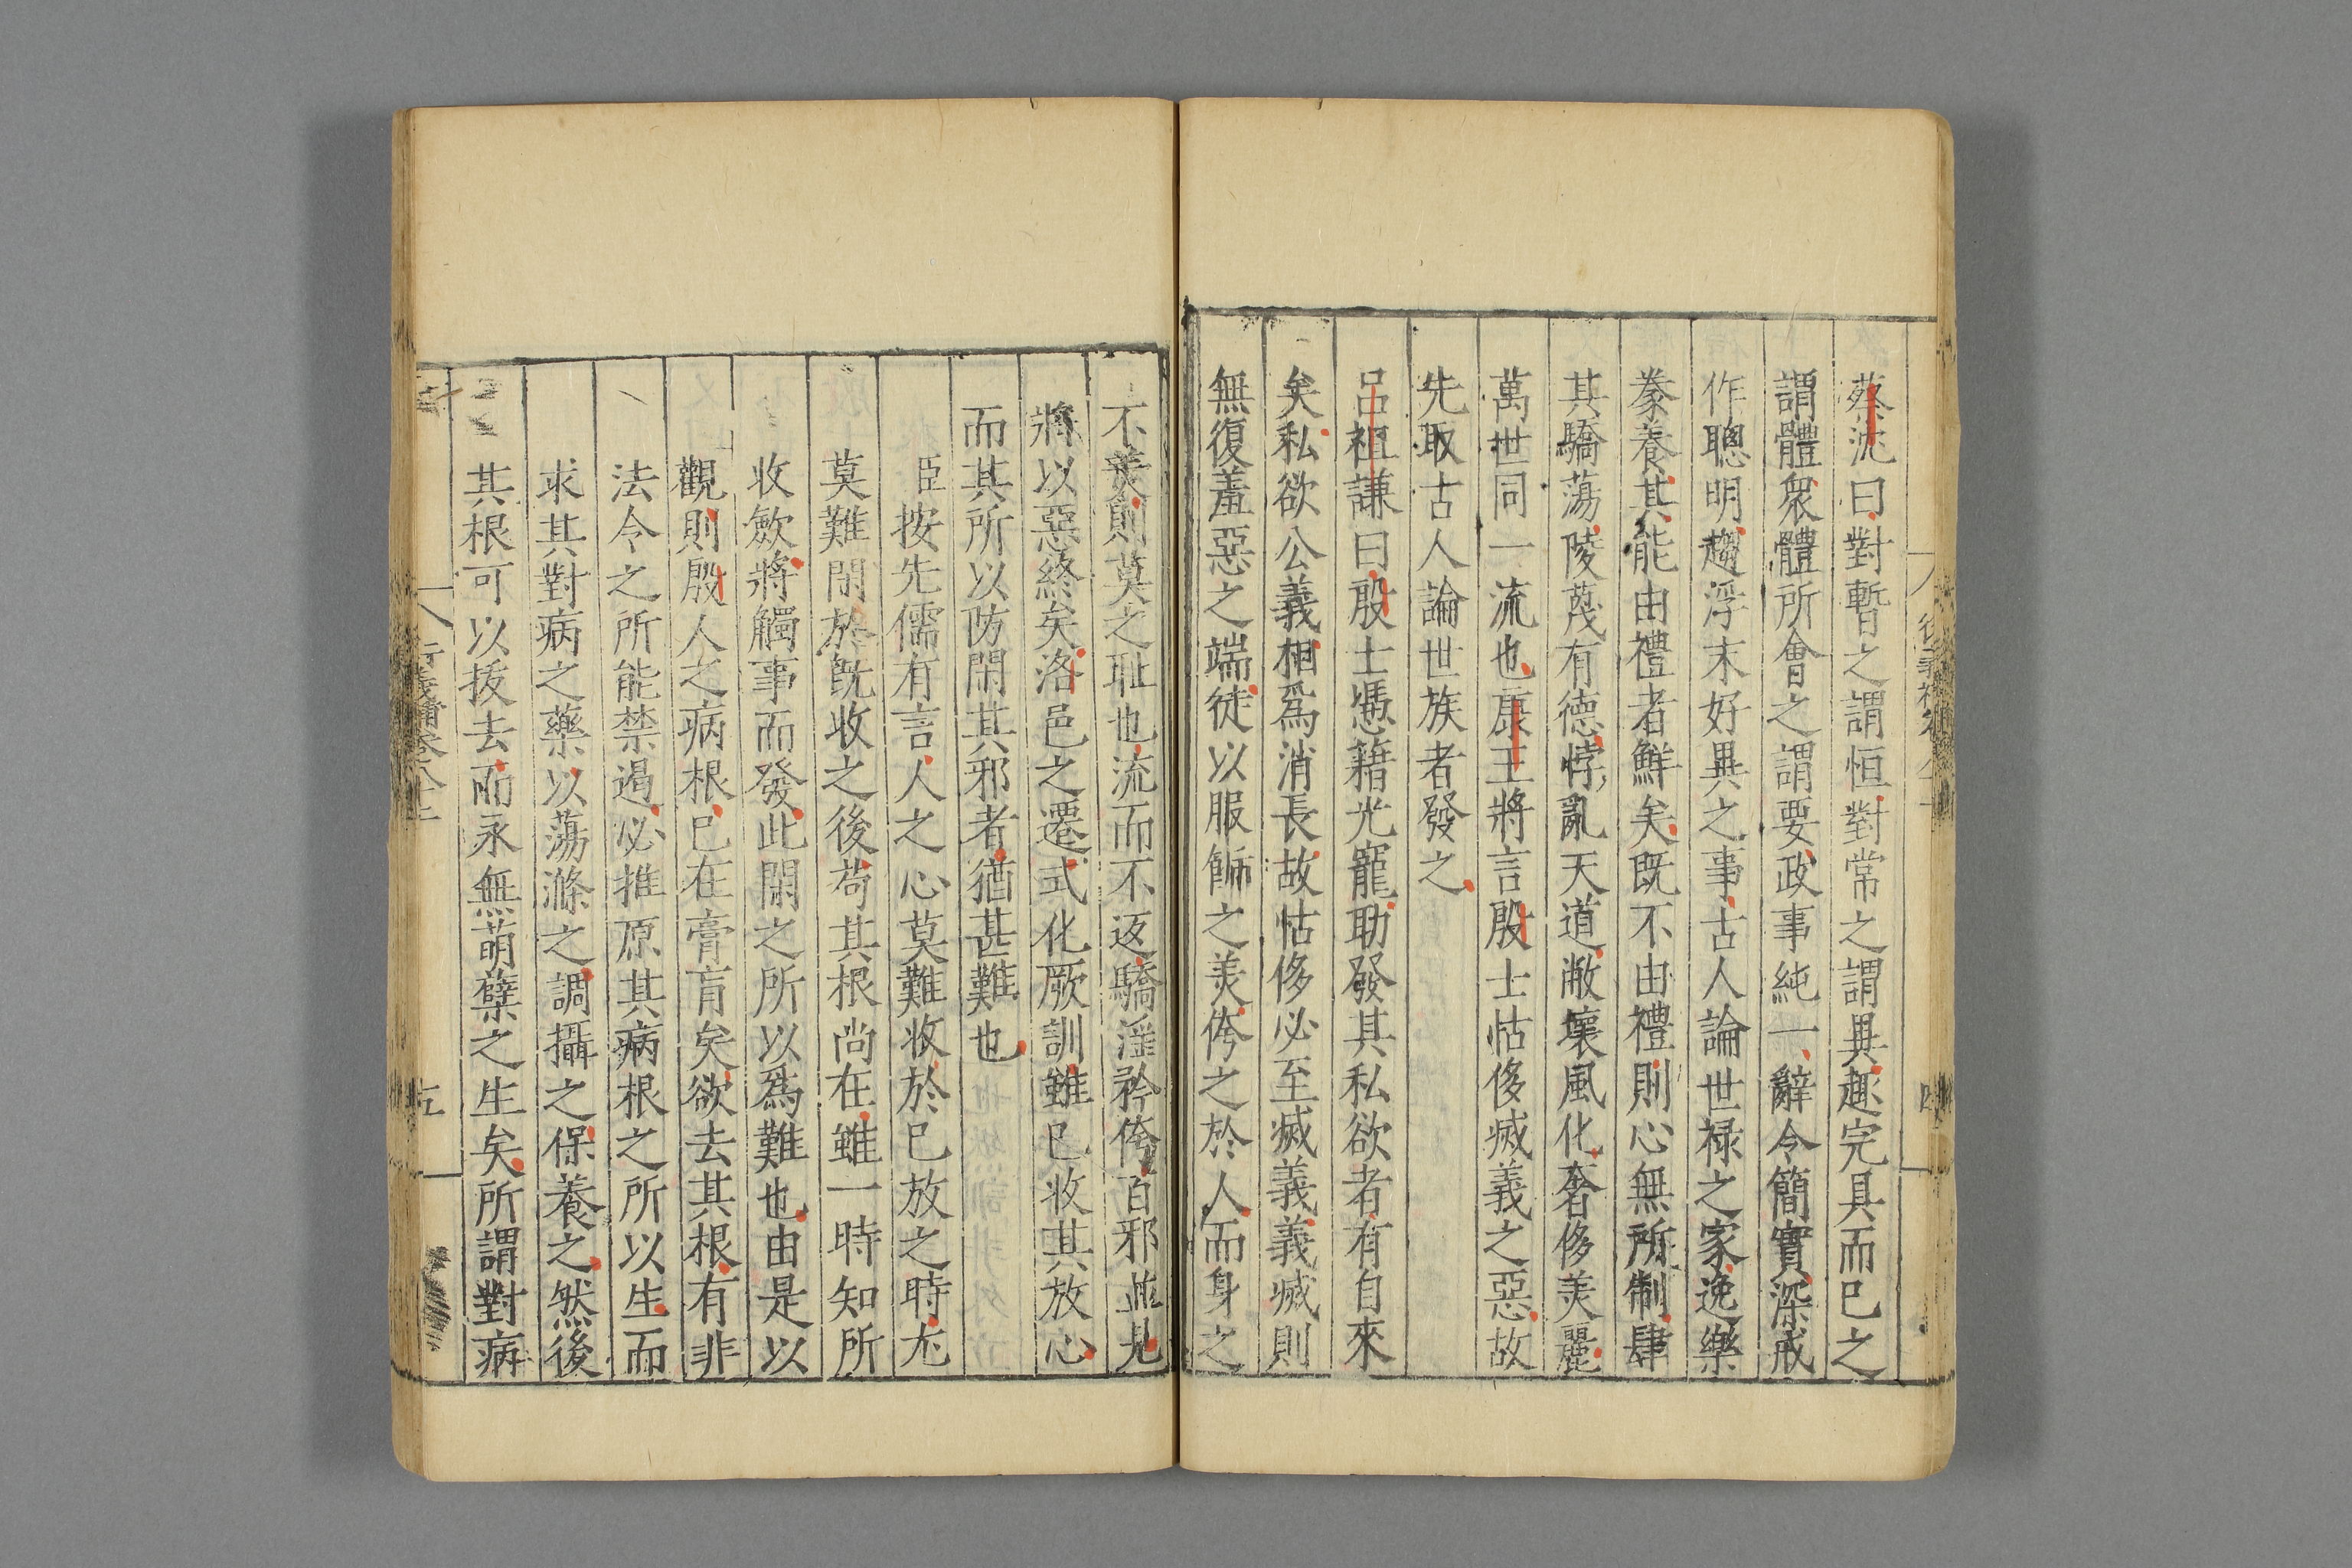 蔡沈曰對暫之謂恒對常之謂異趣完具而已之
謂體衆體所會之謂要政事純一辭令簡實深戒
作聰明趨浮末好異之事古人論世禄之家逸樂
豢養其能由禮者鮮矣既不由禮則心無所制肆
其驕蕩陵蔑有德悖亂天道敝壞風化奢侈羙麗
萬世同一流也康王將言殷士怙侈滅義之惡故
先取古人論世族者發之
呂祖謙曰殷士憑籍光寵助發其私欲者有自來
矣私欲公義相爲消長故怙侈必至滅義義滅則
無復羞惡之端徒以服飾之羙侉之於人而身之
不羙則莫之耻也流而不返驕滛矜侉百邪並見
將以惡終矣洛邑之遷式化厥訓雖已收其放心
而其所以防閑其邪者猶甚難也
臣按先儒有言人之心莫難收於已放之時尤
莫難閑於旣收之後苟其根尚在雖一時知所
收斂將觸事而發此閑之所以爲難也由是以
觀則殷人之病根已在膏肓矣欲去其根有非
法令之所能禁遏必推原其病根之所以生而
求其對病之藥以蕩滌之調攝之保養之然後
其根可以拔去而永無萌孽之生矣所謂對病
衍義補卷八十二
五